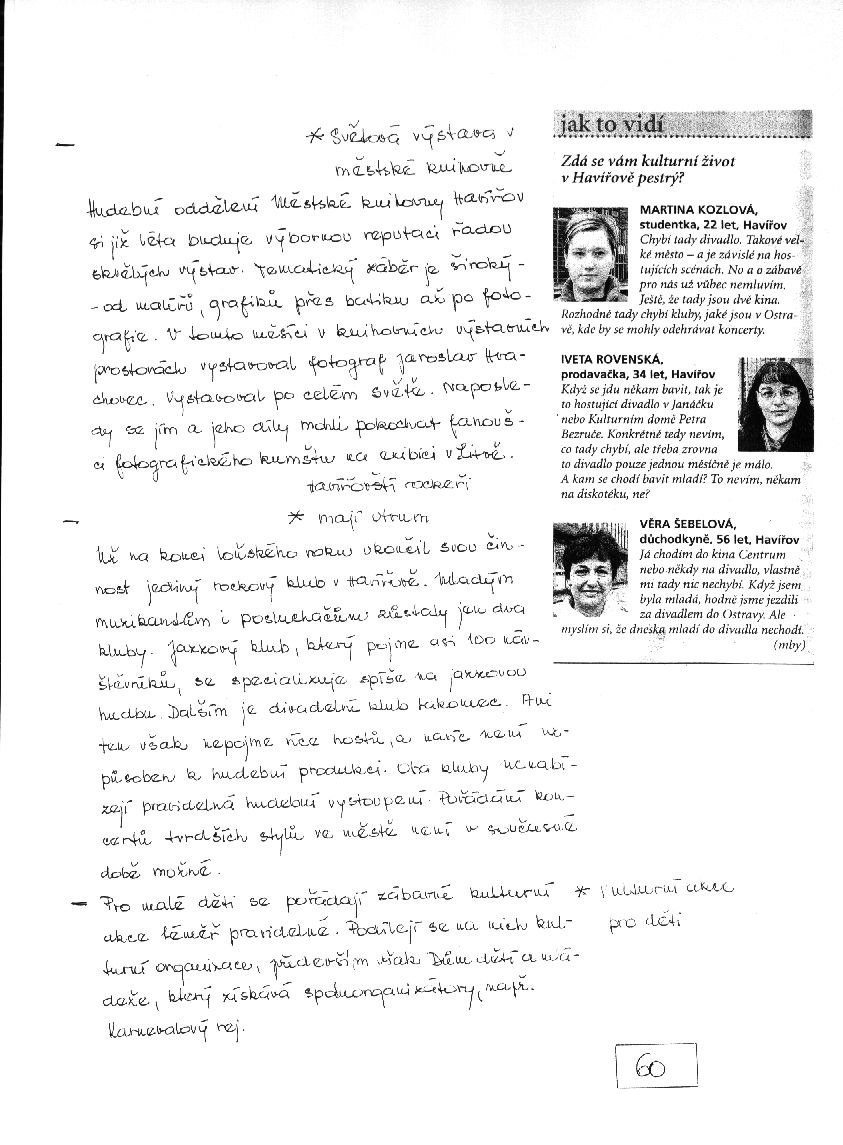 * Světová výstava v
městské knihovně
Hudební oddělení Městské knihovny Havířov
si již léta buduje výbornou reputaci řadou
skvělých výstav. Tematický záběr je široký -
- od malířů, grafiků přes batiku až po foto-
grafie. V tomto měsíci v knihovních výstavních
prostorách vystavoval fotograf Jaroslav Hra-
chovec. Vystavoval po celém světě. Naposle-
dy se jím a jeho díly mohli pokochat fanouš-
ci fotografického kumštu na exibici v Litvě.
Havířovští rockeři
* mají utrum
Už na konci loňského roku ukončil svou čin-
nost jediný rockový klub v Havířově. Mladým
muzikantům i posluchačům zůstaly jen dva
kluby. Jazzový klub, který pojme asi 100 náv-
štěvníků, se specializuje spíše na jazzovou
hudbu. Dalším je divadelní klub tukonec. Ani
ten však nepojme více hostů, a navíc není uz-
působen k hudební produkci. Oba kluby nenabí-
zejí pravidelná hudební vystoupení. Pořádání kon-
certů tvrdších stylů ve městě není v současné
době možné.
Pro malé děti se pořádají zábavné kulturní
akce téměř pravidelně. Podílejí se na nich kul-
turní organizace, především však Dům dětí a mlá-
deže, který získává spoluorganizátory, např.
Karnevalový rej.
* Kulturní akce
pro děti
jak to vidí
Zdá se vám kulturní život
v Havířově pestrý?
MARTINA KOZLOVÁ,
studentka, 22 let, Havířov
Chybí tady divadlo. Takové vel-
ké město – a je závislé na hos-
tujících scénách. No a o zábavě
pro nás už vůbec nemluvím.
Ještě, že tady jsou dvě kina.
Rozhodně tady chybí kluby, jaké jsou v Ostra-
vě, kde by se mohly odehrávat koncerty.
IVETA ROVENSKÁ,
prodavačka, 34 let, Havířov
Když se jdu někam bavit, tak je
to hostující divadlo v Janáčku
nebo Kulturním domě Petra
Bezruče. Konkrétně tedy nevím,
co tady chybí, ale třeba zrovna
to divadlo pouze jednou měsíčně je málo.
A kam se chodí bavit mladí? To nevím, někam
na diskotéku, ne?
VĚRA ŠEBELOVÁ,
důchodkyně, 56 let, Havířov
Já chodím do kina Centrum
nebo někdy na divadlo, vlastně
mi tady nic nechybí. Když jsem
byla mladá, hodně jsme jezdili
za divadlem do Ostravy. Ale
myslím si, že dneska mladí do divadla nechodí.
(mby)
60